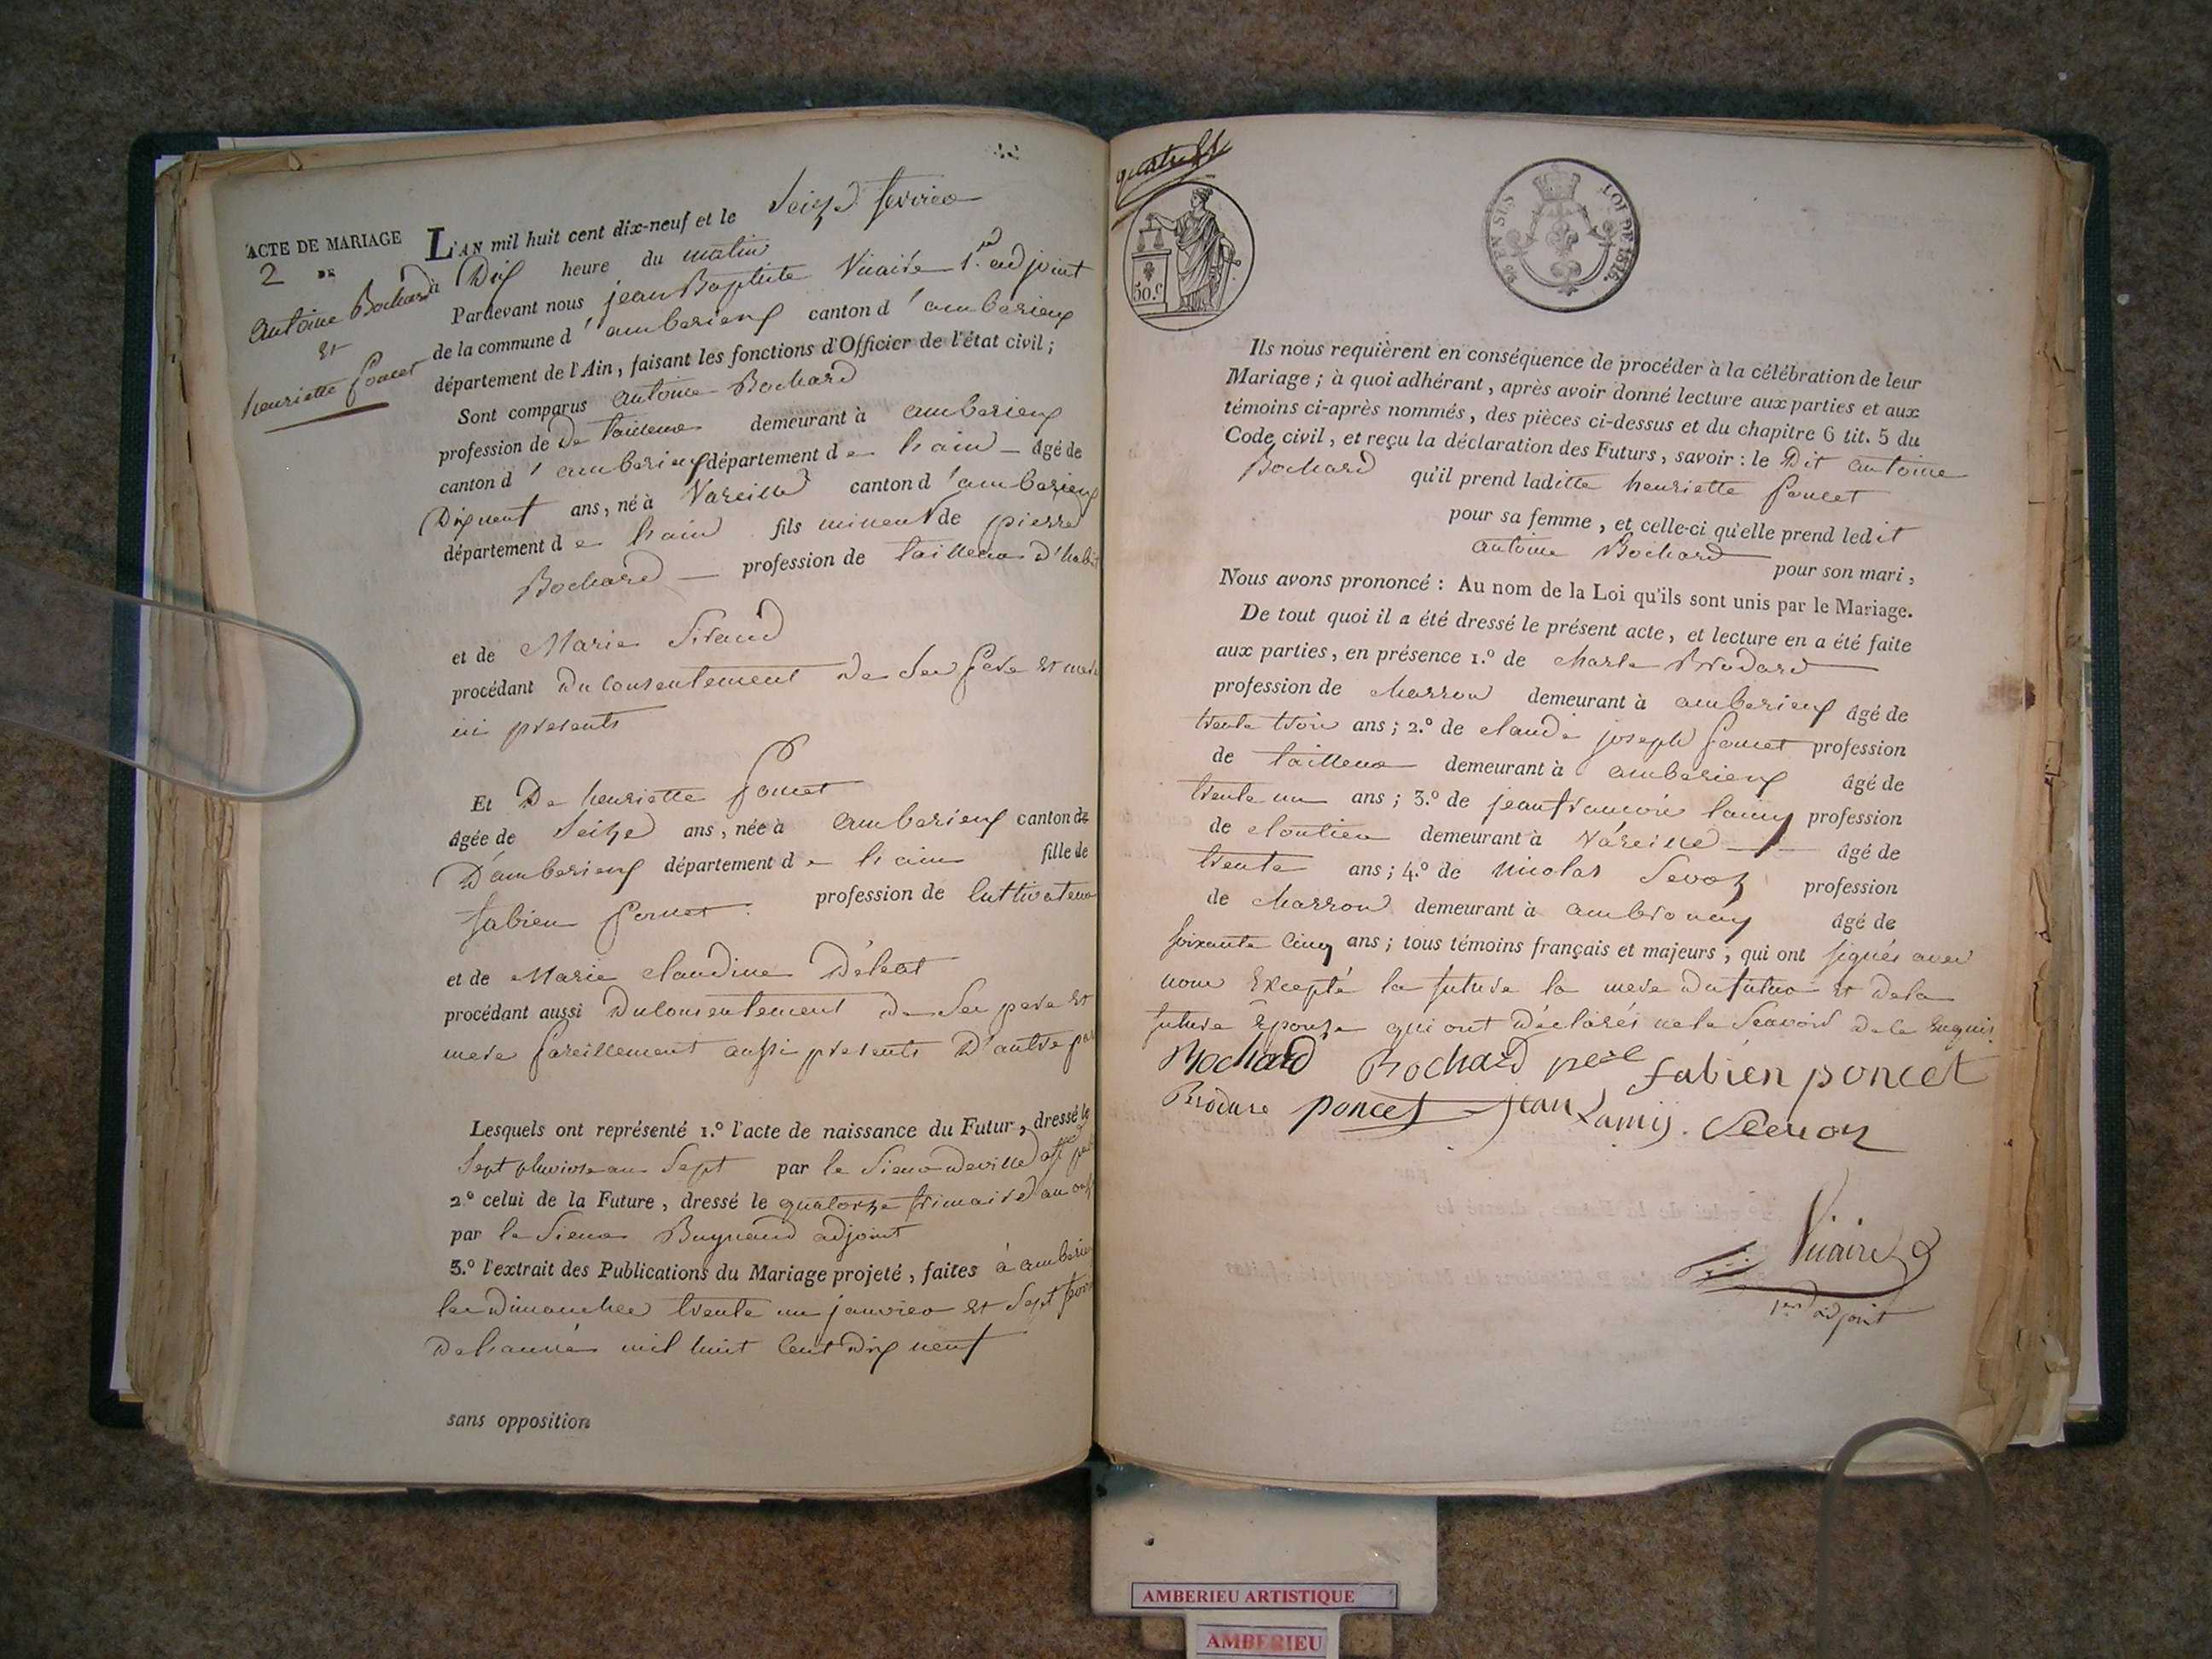 ACTE DE MARIAGE
2 DE
antoine Bochard
et
henriette poncet
L'AN mil huit cent dix-neuf et le Seize fevrier
à Dix heure du matin
Pardevant nous jean Baptiste Vicaire 1er adjoint
de la commune d'amberieux canton d'amberieux
département de l'Ain, faisant les fonctions d'Officier de l'état civil;
Sont comparus antoine Bochard
profession de De tailleur demeurant à amberieux
canton d'amberieux département de hain - âgé de
Dixneuf ans, né à Vareille canton d'amberieux
département de hain fils mineur de pierre
Bochard - profession de tailleur d'habit
et de Marie Siraud
procédant du consentement de Ses pere et mere
ici presents
Et De henriette poncet
âgée de Seize ans, née à amberieux canton de
D'amberieux département de hain fille de
fabien poncet profession de Cultivateur
et de Marie claudine Déletat
procédant aussi Du consentement de Ses pere et
mere pareillement aussi presents D'autre part
Lesquels ont représenté 1.º l'acte de naissance du Futur, dressé le
Sept pluviose an Sept par le Sieur deville
2º celui de la Future, dressé le quatorze frimaire an onze
par le Sieur Bugnaud adjoint
3.º l'extrait des Publications du Mariage projeté, faites à amberieux
les Dimanches trente un janvier et Sept fevrier
De hannée mil huit Cent Dix neuf
sans opposition
50.c
LOI DE 1816.
Ils nous requièrent en conséquence de procéder à la célébration de leur
Mariage; à quoi adhérant, après avoir donné lecture aux parties et aux
témoins ci-après nommés, des pièces ci-dessus et du chapitre 6 tit. 5 du
Code civil, et reçu la déclaration des Futurs, savoir: le Dit antoine
Bochard qu'il prend laditte henriette poncet
pour sa femme, et celle-ci qu'elle prend ledit
antoine Bochard pour son mari,
Nous avons prononcé: Au nom de la Loi qu'ils sont unis par le Mariage.
De tout quoi il a été dressé le présent acte, et lecture en a été faite
aux parties, en présence 1.º de charle Brodard
profession de charron demeurant à amberieux âgé de
trente trois ans; 2.º de claude joseph poncet profession
de tailleur demeurant à amberieux âgé de
trente un ans; 3.º de jean francois lamy profession
de cloutier demeurant à Vareille âgé de
trente ans; 4.º de nicolas Sevoz profession
de charron demeurant à ambronay âgé de
soixante Cinq ans; tous témoins français et majeurs, qui ont signés avec
nous Excepté la future la mere du futur et de la
future Epouse qui ont déclarés ne le Scavoir de ce enquis
Bochard Bochard pere fabien poncet
Brodard poncet jean Lamy. Sevoz
Vicaire
1er adjoint
AMBERIEU ARTISTIQUE
AMBERIEU